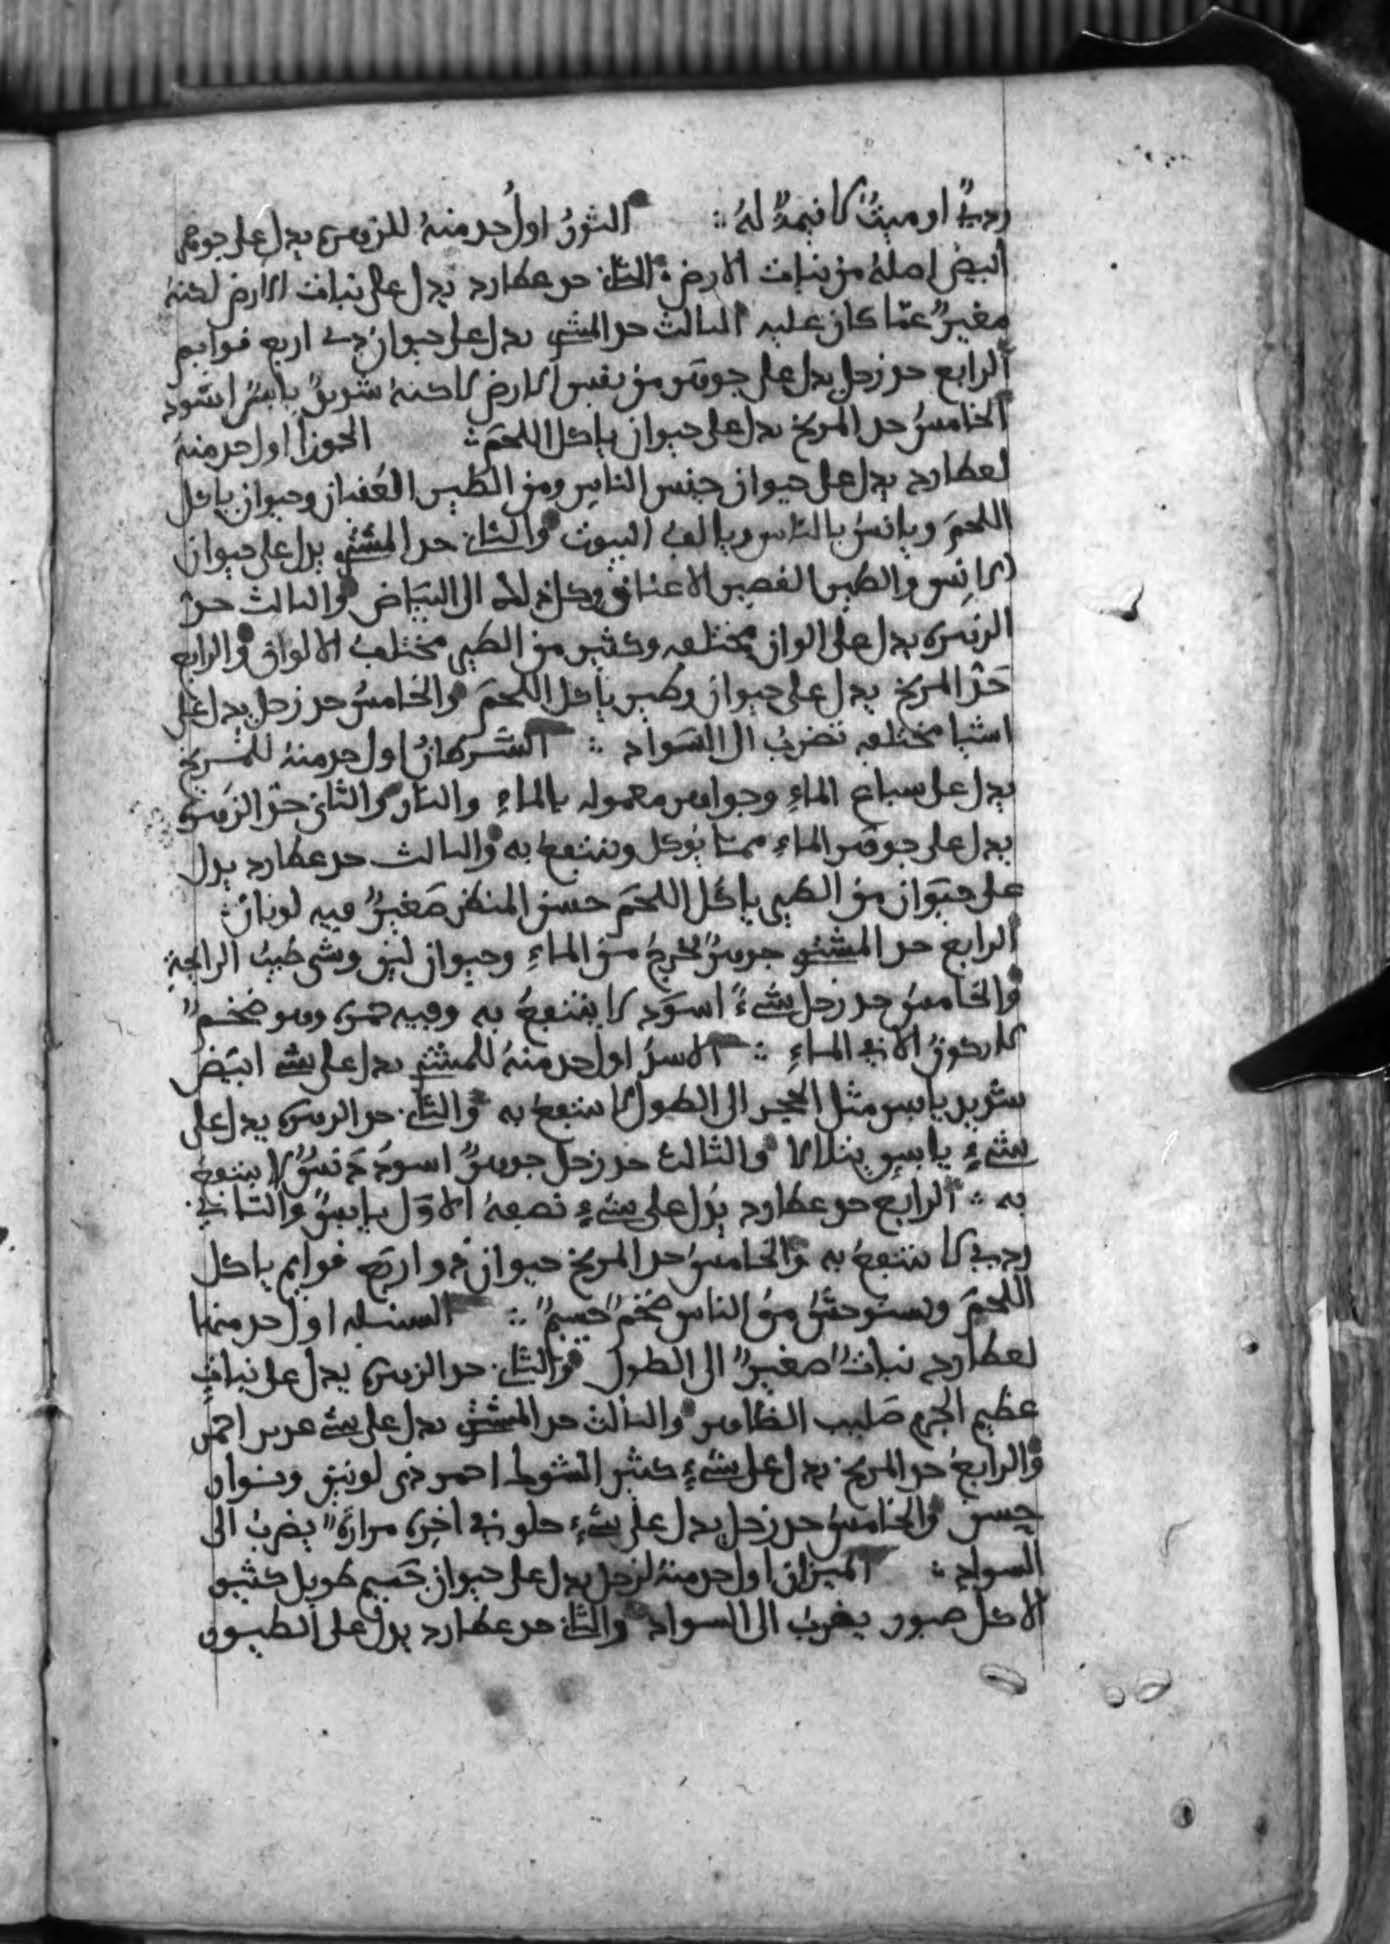 رديء او ميت لا قيمة له ∴ الثور اول حد منه للزهره يدل على جوهر
ابيض اصله من نبات الارض الثاني حد عطارد يدل على نبات الارض لكنه
مغير عمّا كان عليه الثالث حد المشتري يدل على حيوان ذي اربع قوايم
الرابع حد زحل يدل على جوهر من نفس الارض لاكنه شديد يابس اسود
الخامس حد المريخ يدل على حيوان ياكل اللحم ∴ الجوزا اول حد منه
لعطارد يدل على حيوان جنس الناس ومن الطير العقبان وحيوان ياكل
اللحم ويانس بالناس ويالف البيوت والثاني حد المشتري يدل على حيوان
الانس والطير القصير الاعناق وكل ذلك الى البياض والثالث حد
الزهره يدل على الوان مختلفه وكثير من الطير مختلف الالوان والرابع
حد المريخ يدل على حيوان وطير ياكل اللحم والخامس حد زحل يدل على
اشيا مختلفه تضرب الى السواد ∴ السرطان اول حد منه للمريخ
يدل على سباع الماء وجواهر معموله بالماء والنار والثاني حد الزهره
يدل على جوهر الماء مما يوكل وينتفع به والثالث حد عطارد يدل
على حيوان من الطير ياكل اللحم حسن المنظر صغير فيه لونان ∴
الرابع حد المشتري جوهر يخرج من الماء وحيوان لين وشي طيب الرايحة
والخامس حد زحل شيء اسود لا ينتفع به وفيه حمره وهو ضخم
لا يكون الا في الماء ∴ الاسد اول حد منه للمشتري يدل على شي ابيض
شديد يابس مثل الحجر الى الطول لا ينتفع به والثاني حد الزهره يدل على
شيء يابس يتلالا والثالث حد زحل جوهر اسود دنس لا ينتفع
به ∴ الرابع حد عطارد يدل على شيء نصفه الاول يابس والثاني
رديء لا ينتفع به والخامس حد المريخ حيوان ذو اربع قوايم ياكل
اللحم ويستوحش من الناس ضخم جسيم ∴ السنبله اول حد منها
لعطارد نبات صغير الى الطول والثاني حد الزهره يدل على نبات
عظيم الجرم صليب الظاهر والثالث حد المشتري يدل على شي احمر
والرابع حد المريخ يدل على شيء كثير الشوك احمر ذي لونين
حسن والخامس حد زحل يدل على شيء حلو في اخره مرارة يضرب الى
السواد ∴ الميزان اول حد منه لزحل يدل على حيوان جسيم طويل كثير
الاكل صبور يضرب الى السواد والثاني حد عطارد يدل على الطيور